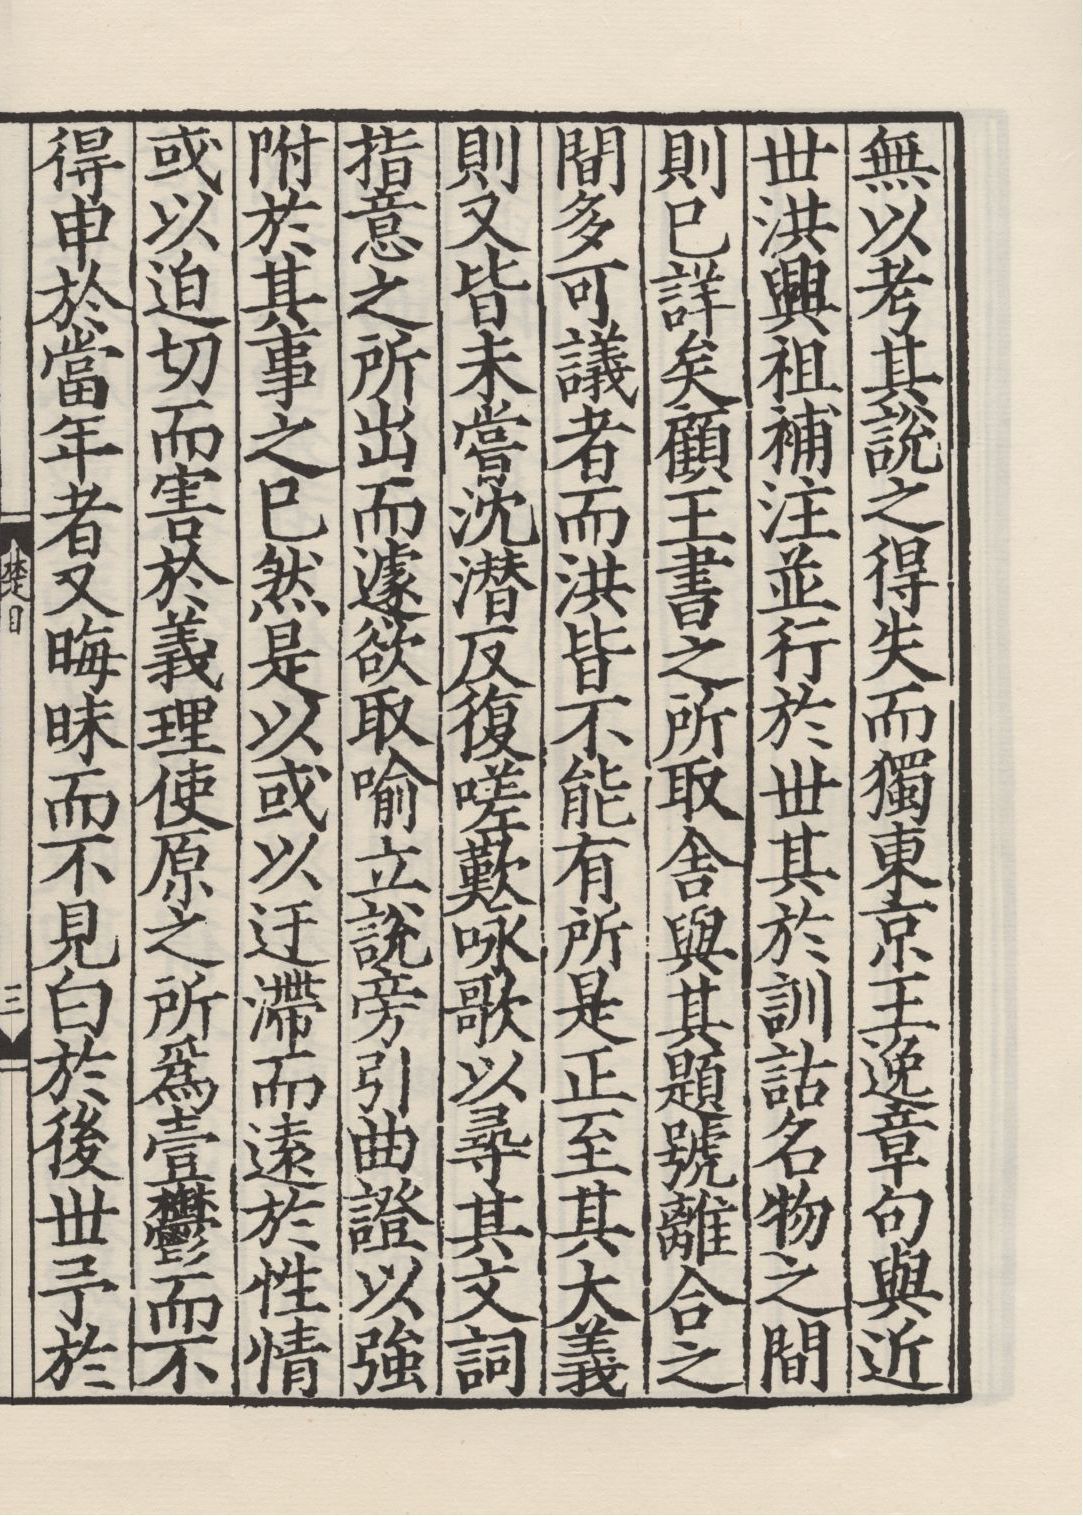 無以考其說之得失而獨東京王逸章句與近
丗洪興祖補注並行於丗其於訓詁名物之間
則已詳矣顧王書之所取舍與其題號離合之
間多可議者而洪皆不能有所是正至其大義
則又皆未嘗沈潜反復嗟歎咏歌以尋其文詞
指意之所出而遽欲取喻立說旁引曲證以強
附於其事之已然是以或以迂滯而遠於性情
或以迫切而害於義理使原之所爲壹鬱而不
得申於當年者又晦昧而不見白於後丗予於
楚目
三